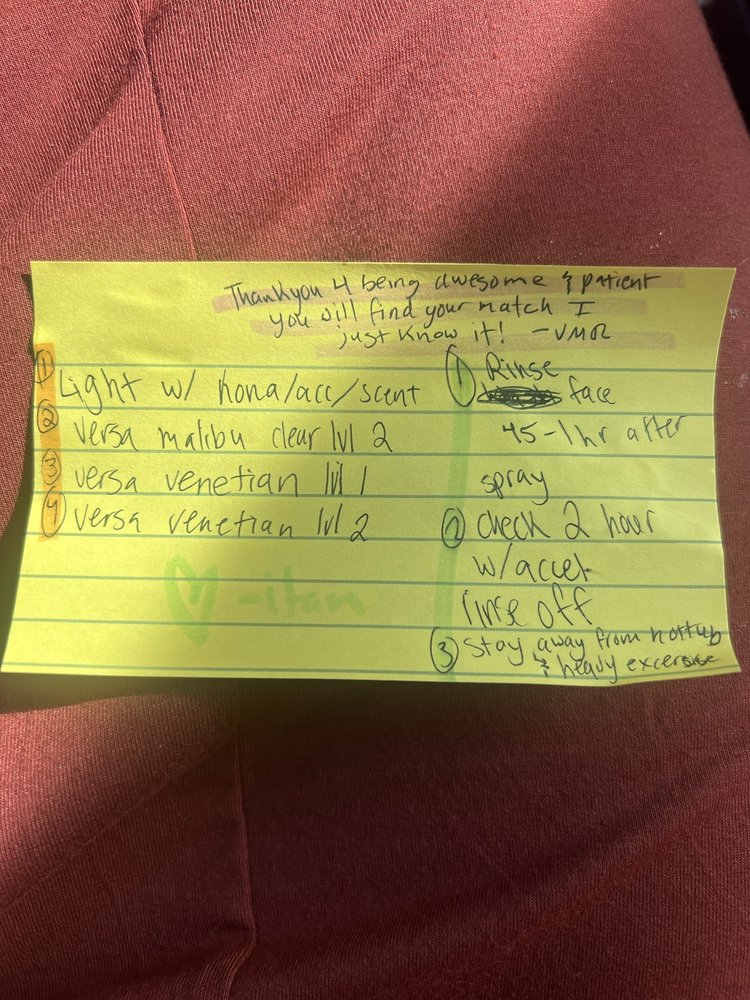 Thankyou 4 being awesome & patient
you will find your match I
just know it! -VMR
① Light w/ kona/acc/scent
② versa malibu clear lvl 2
③ versa venetian lvl 1
④ versa venetian lvl 2
♡ -itan
① Rinse
face
45-1hr after
spray
② check 2 hour
w/accel
rinse off
③ Stay away from hottub
& heavy excersise